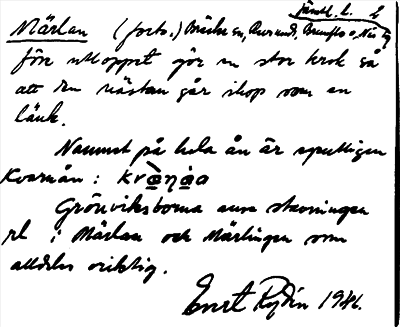 Jämtl. l. 2
Märlan (forts.) Bräcke sn, Revsund, Brunflo o. Näs tg
före utloppet gör en stor krok så
att den nästan går ihop som en
länk.
Namnet på hela ån är egentligen
Kvarnån: kvàṇåa
Grönviksborna anse stavningen
rl i Märlan och Märlingen som
alldeles oriktig.
Ernst Rydin 1946.